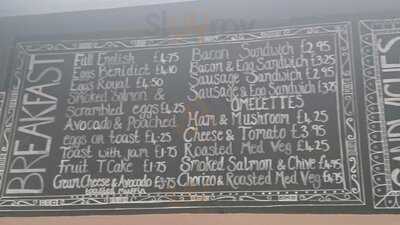 BREAKFAST
Full English £4.75
Eggs Benedict £4.10
Eggs Royal £4.50
Smoked Salmon &
Scrambled eggs £4.25
Avocado & Poached
eggs on toast £4.25
Toast with jam £1.75
Fruit T'Cake £1.75
Cream Cheese & Avocado £3.75
toasted muffin
Bacon Sandwich £2.95
Bacon & Egg Sandwich £3.25
Sausage Sandwich £2.95
Sausage & Egg Sandwich £3.25
OMELETTES
Ham & Mushroom £4.25
Cheese & Tomato £3.95
Roasted Med Veg £4.25
Smoked Salmon & Chive £4.75
Chorizo & Roasted Med Veg £4.75
SANDWICHES